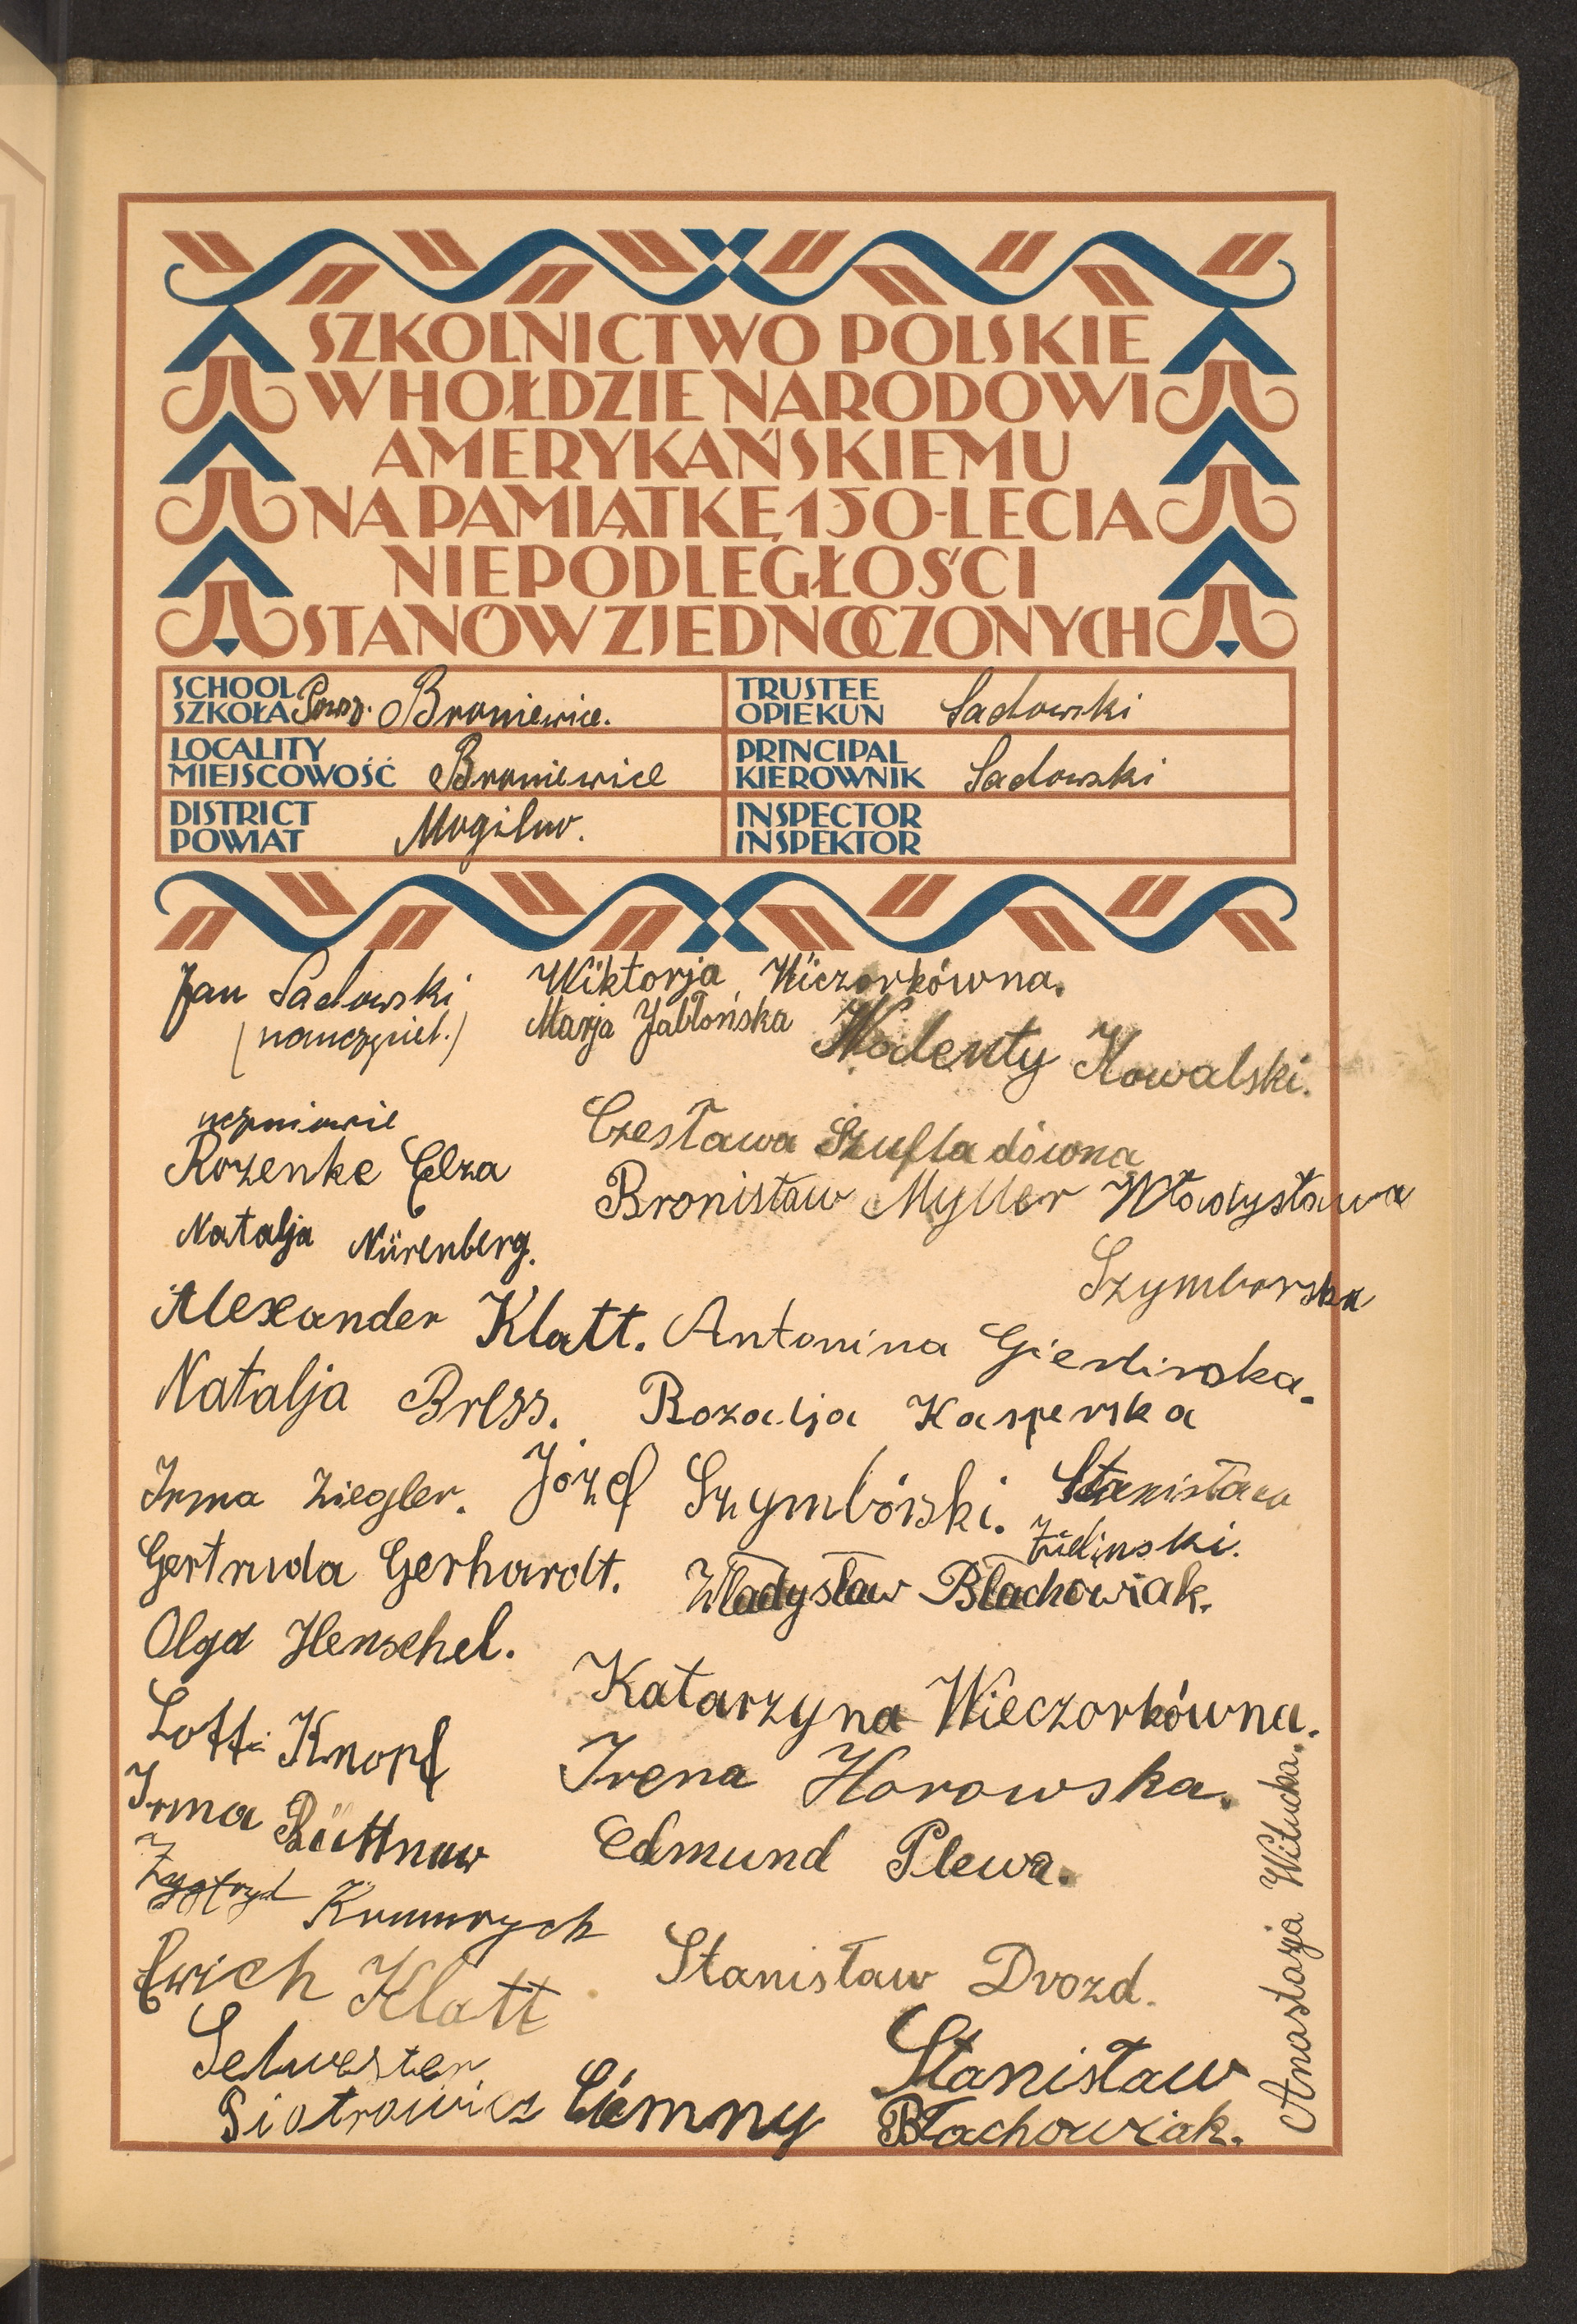 SZKOLNICTWO POLSKIE
W HOŁDZIE NARODOWI
AMERYKAŃSKIEMU
NA PAMIĄTKĘ 150-LECIA
NIEPODLEGŁOŚCI
STANÓW ZJEDNOCZONYCH
SCHOOL
SZKOŁA Powsz. Broniewice.
TRUSTEE
OPIEKUN Sadowski
LOCALITY
MIEJSCOWOŚĆ Broniewice
PRINCIPAL
KIEROWNIK Sadowski
DISTRICT
POWIAT Mogilno.
INSPECTOR
INSPEKTOR
Jan Sadowski
(nauczyciel.)
uczniowie
Rozenke Elza
Natalja Nürenberg.
Alexander Klatt.
Natalja Bress.
Irma Ziegler.
Gertruda Gerhardt.
Olga Henschel.
Lotti Knopf
Irma
Erich Klatt
Selwester
Piotrowicz
Ciemny
Wiktorja Wiczorkówna.
Marja Jabłońska
Walenty Kowalski.
Czesława Szufladówna
Bronisław Myller
Władysława
Szymborska
Antonina
Rozalja Kasperska
Józef Szymbórski.
Stanisław
Zieliński.
Władysław Błachowiak.
Katarzyna Wieczorkówna.
Irena Horowska.
Edmund Plewa.
Stanisław Drozd.
Stanisław
Błachowiak.
Anastazja Witucka.